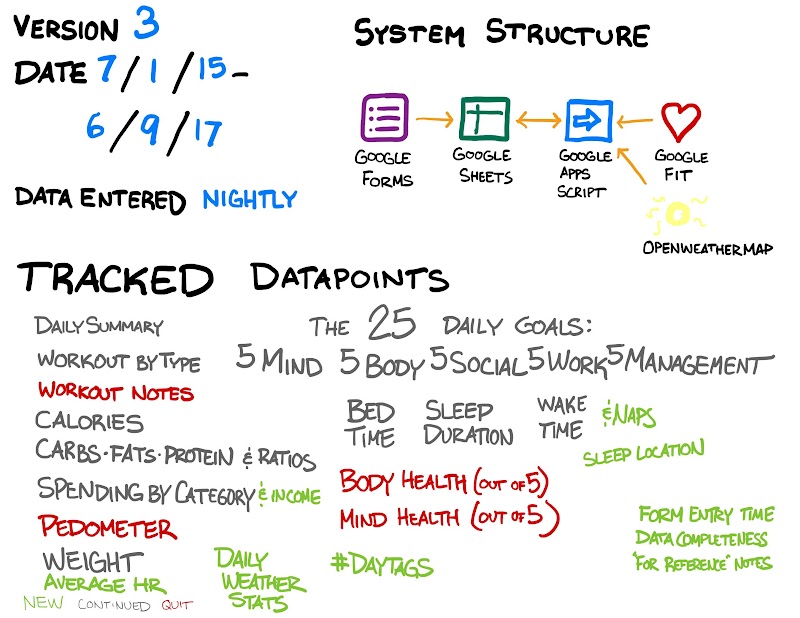 VERSION 3
DATE 7/1/15-
6/9/17
DATA ENTERED NIGHTLY
SYSTEM STRUCTURE
GOOGLE FORMS
GOOGLE SHEETS
GOOGLE APPS SCRIPT
GOOGLE FIT
OPENWEATHERMAP
TRACKED DATAPOINTS
DAILY SUMMARY
WORKOUT BY TYPE
WORKOUT NOTES
CALORIES
CARBS·FATS·PROTEIN & RATIOS
SPENDING BY CATEGORY & INCOME
PEDOMETER
WEIGHT
AVERAGE HR
DAILY WEATHER STATS
THE 25 DAILY GOALS:
5 MIND 5 BODY 5 SOCIAL 5 WORK 5 MANAGEMENT
BED TIME
SLEEP DURATION
WAKE TIME
& NAPS
SLEEP LOCATION
BODY HEALTH (OUT OF 5)
MIND HEALTH (OUT OF 5)
#DAYTAGS
FORM ENTRY TIME
DATA COMPLETENESS
"FOR REFERENCE" NOTES
NEW CONTINUED QUIT